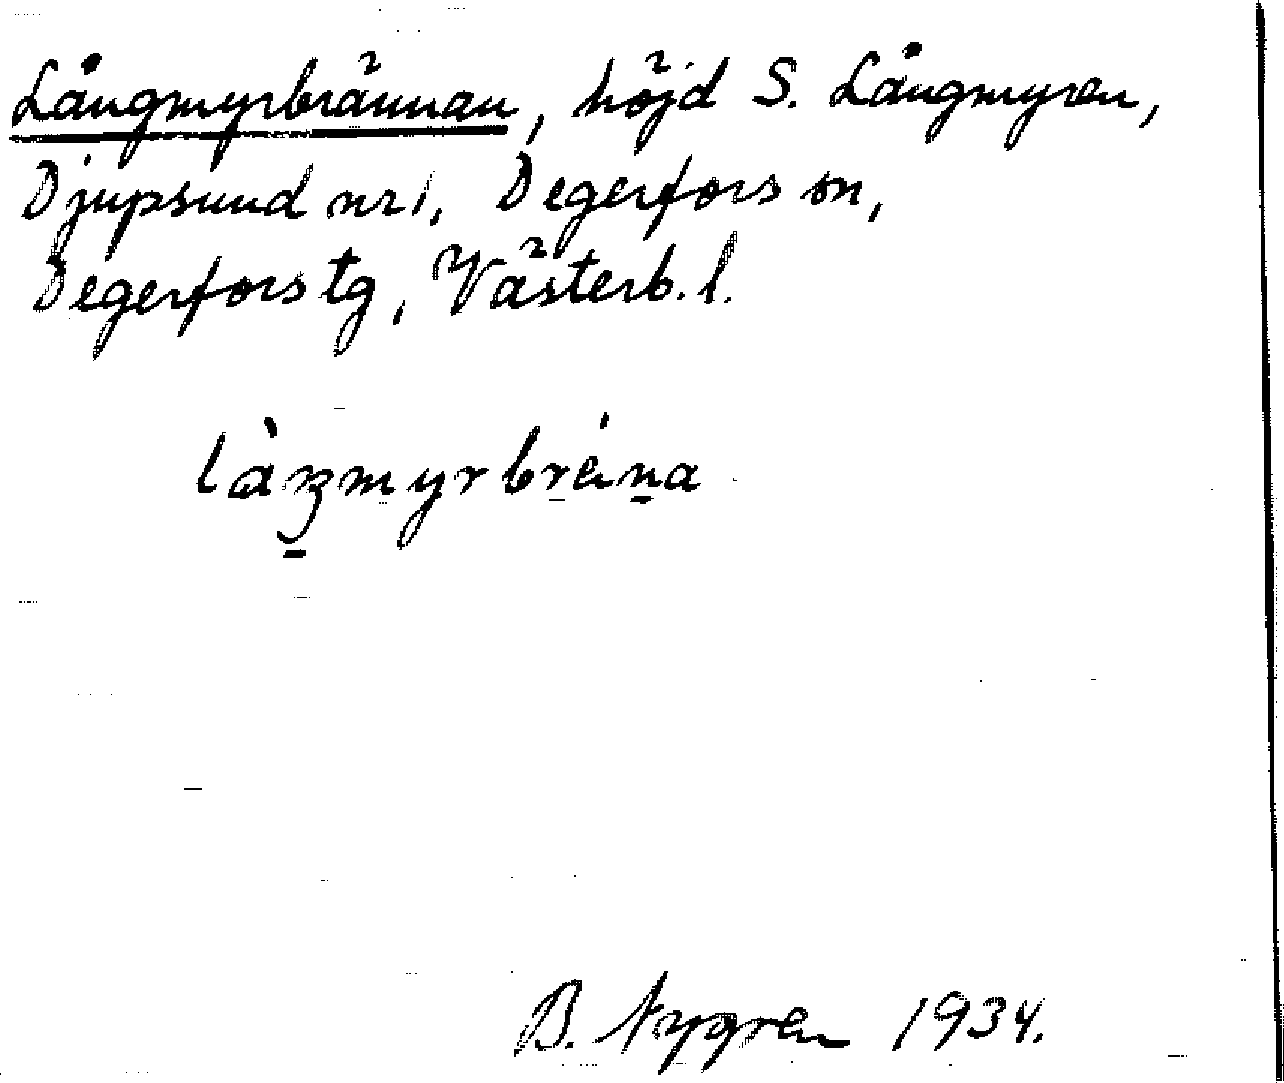 Långmyrbrännan, höjd S. Långmyren,
Djupsund nr 1, Degerfors sn,
Degerfors tg, Västerb. l.
làŋmyrbréna
B. Nygren 1934.